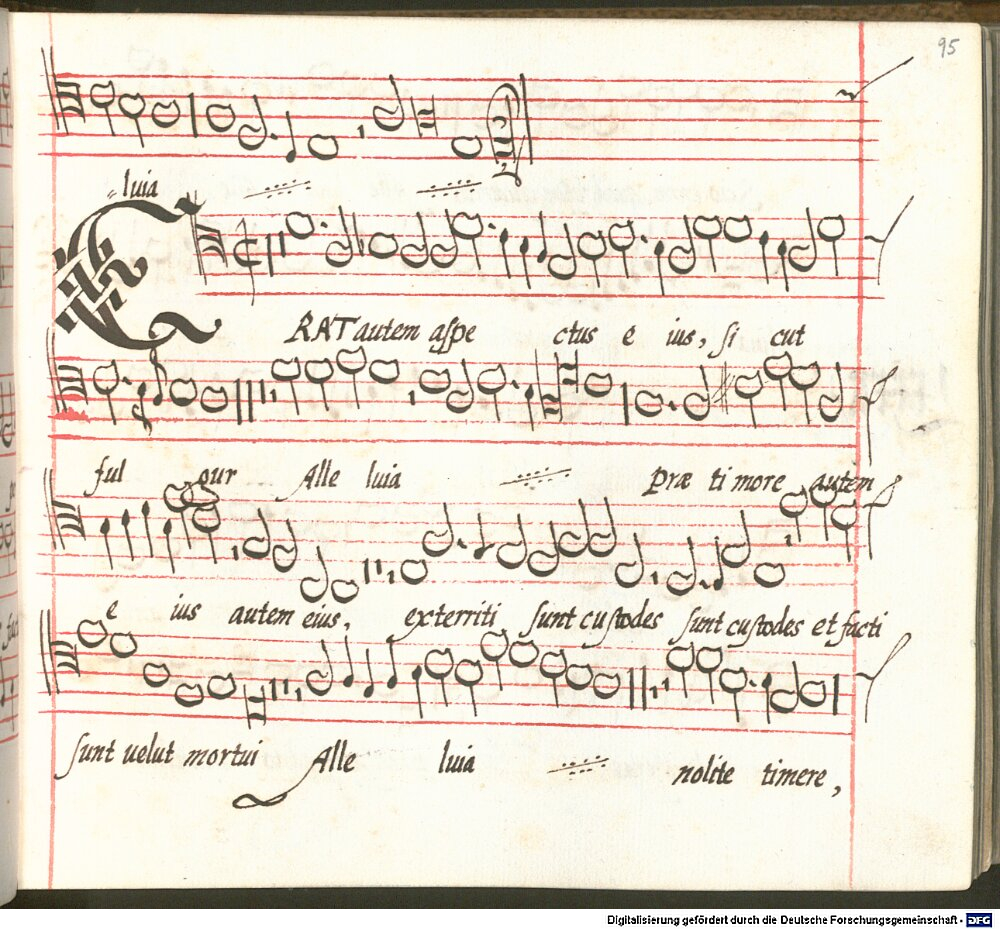 95
luia
ERAT autem aspe ctus e ius, si cut
ful gur Alle luia Præ ti more autem
e ius autem eius, exterriti sunt custodes sunt custodes et facti
sunt uelut mortui Alle luia nolite timere,
Digitalisierung gefördert durch die Deutsche Forschungsgemeinschaft - DFG